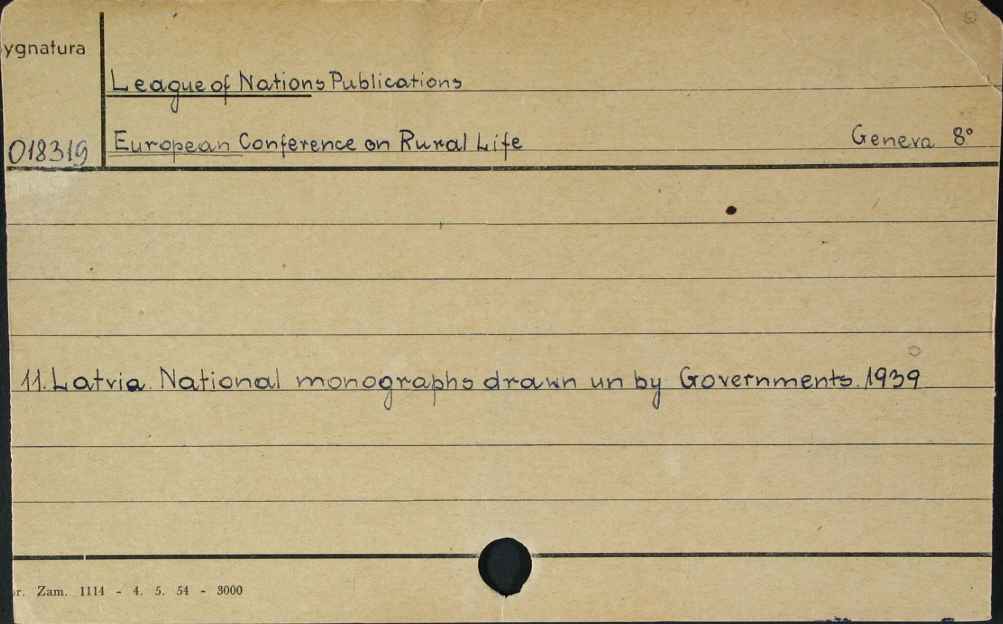 ygnatura
League of Nations Publications
018319 European Conference on Rural Life Geneva 8°
11. Latvia. National monographs drawn un by Governments. 1939
r. Zam. 1114 - 4. 5. 54 - 3000